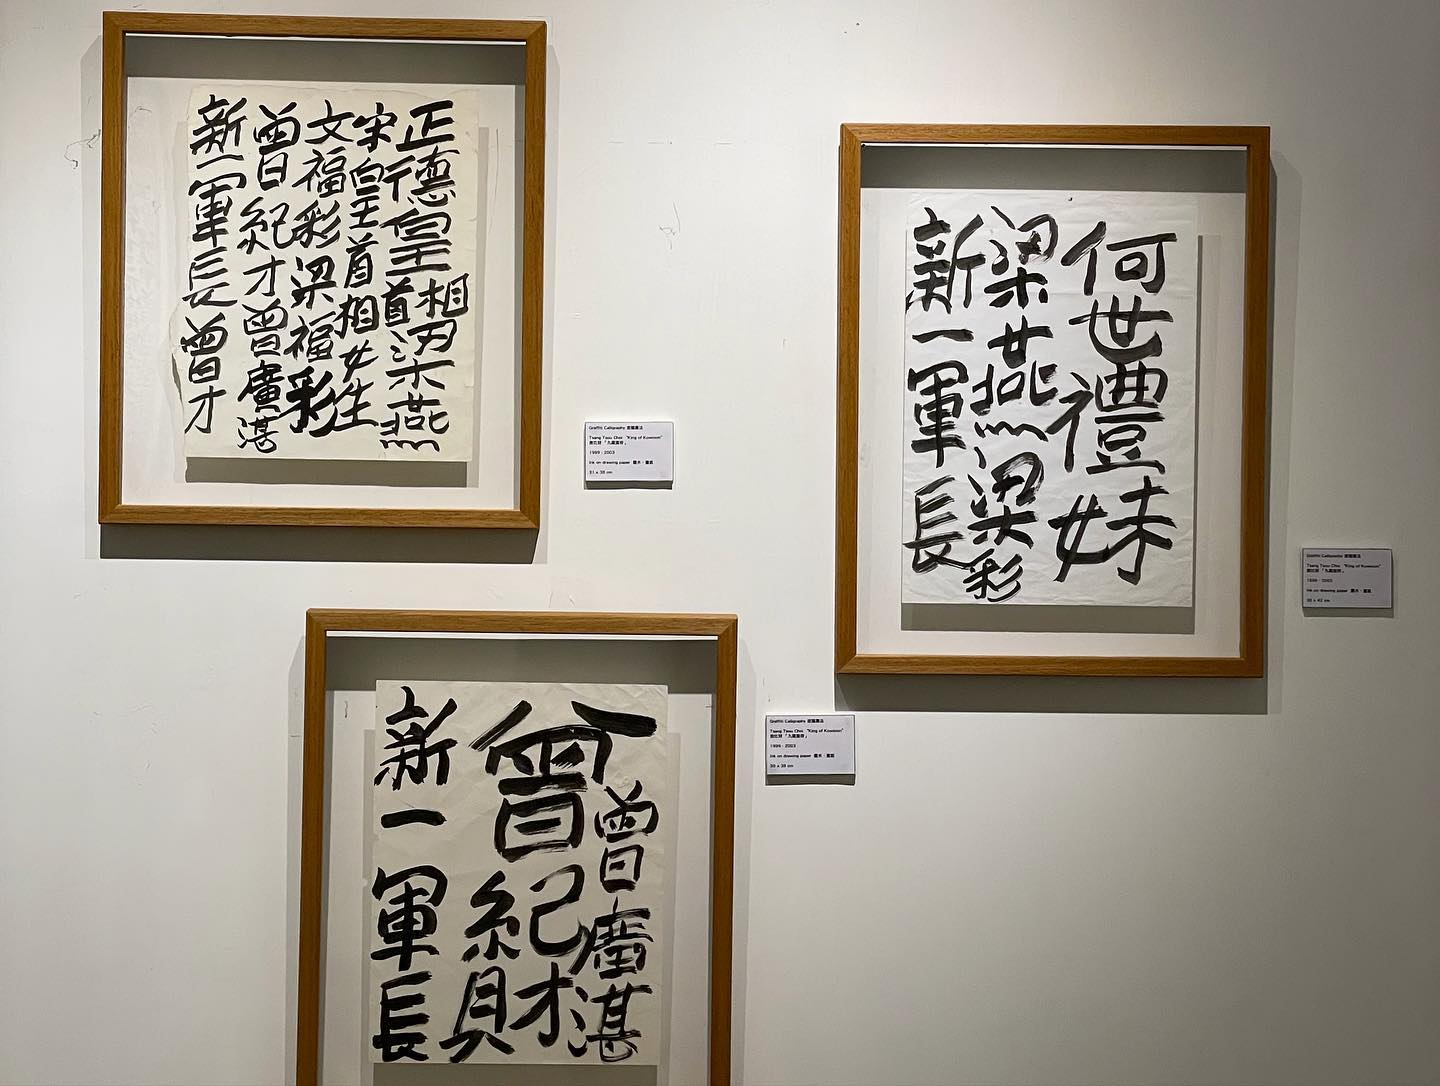 正德皇首相梁燕
宋皇首相姓
文福彩梁福彩
曾紀才曾廣湛
新一軍長曾才
Graffiti Calligraphy 塗鴉書法
Tsang Tsou Choi “King of Kowloon”
曾灶財「九龍皇帝」
1999 - 2003
Ink on drawing paper 墨水・畫紙
何世禮妹
梁燕梁彩
新一軍長
Graffiti Calligraphy 塗鴉書法
Tsang Tsou Choi “King of Kowloon”
曾灶財「九龍皇帝」
1999 - 2003
Ink on drawing paper 墨水・畫紙
曾廣湛
曾紀財
新一軍長
Graffiti Calligraphy 塗鴉書法
Tsang Tsou Choi “King of Kowloon”
曾灶財「九龍皇帝」
1999 - 2003
Ink on drawing paper 墨水・畫紙